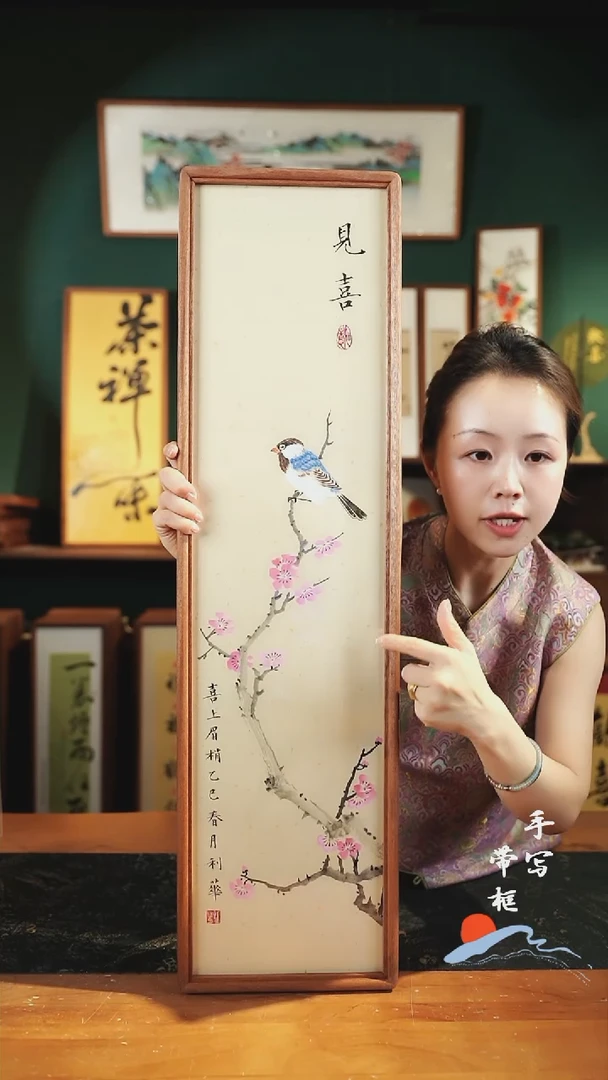 見喜
喜上眉梢乙巳春月利華
茶禅一味
手写
带框